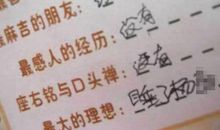 麻吉的朋友:
最感人的经历: 没有
座右铭与口头禅: 没有
最大的理想: 睡了杨